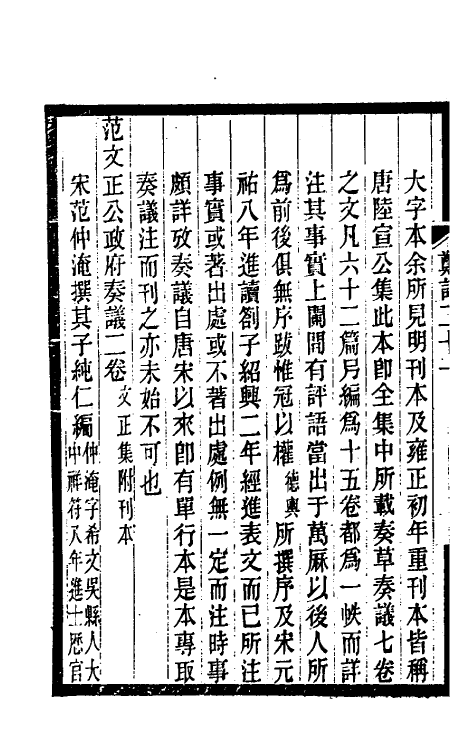 大字本余所見明刊本及雍正初年重刊本皆稱
唐陸宣公集此本卽全集中所載奏草奏議七卷
之文凡六十二篇另編爲十五卷都爲一帙而詳
注其事實上闌間有評語當出于萬厤以後人所
爲前後俱無序跋惟冠以權德輿所撰序及宋元
祐八年進讀劄子紹興二年經進表文而已所注
事實或著出處或不著出處例無一定而注時事
頗詳攷奏議自唐宋以來卽有單行本是本專取
奏議注而刊之亦未始不可也
范文正公政府奏議二卷文正集附刊本
宋范仲淹撰其子純仁編仲淹字希文吳縣人大
中祥符八年進士歷官